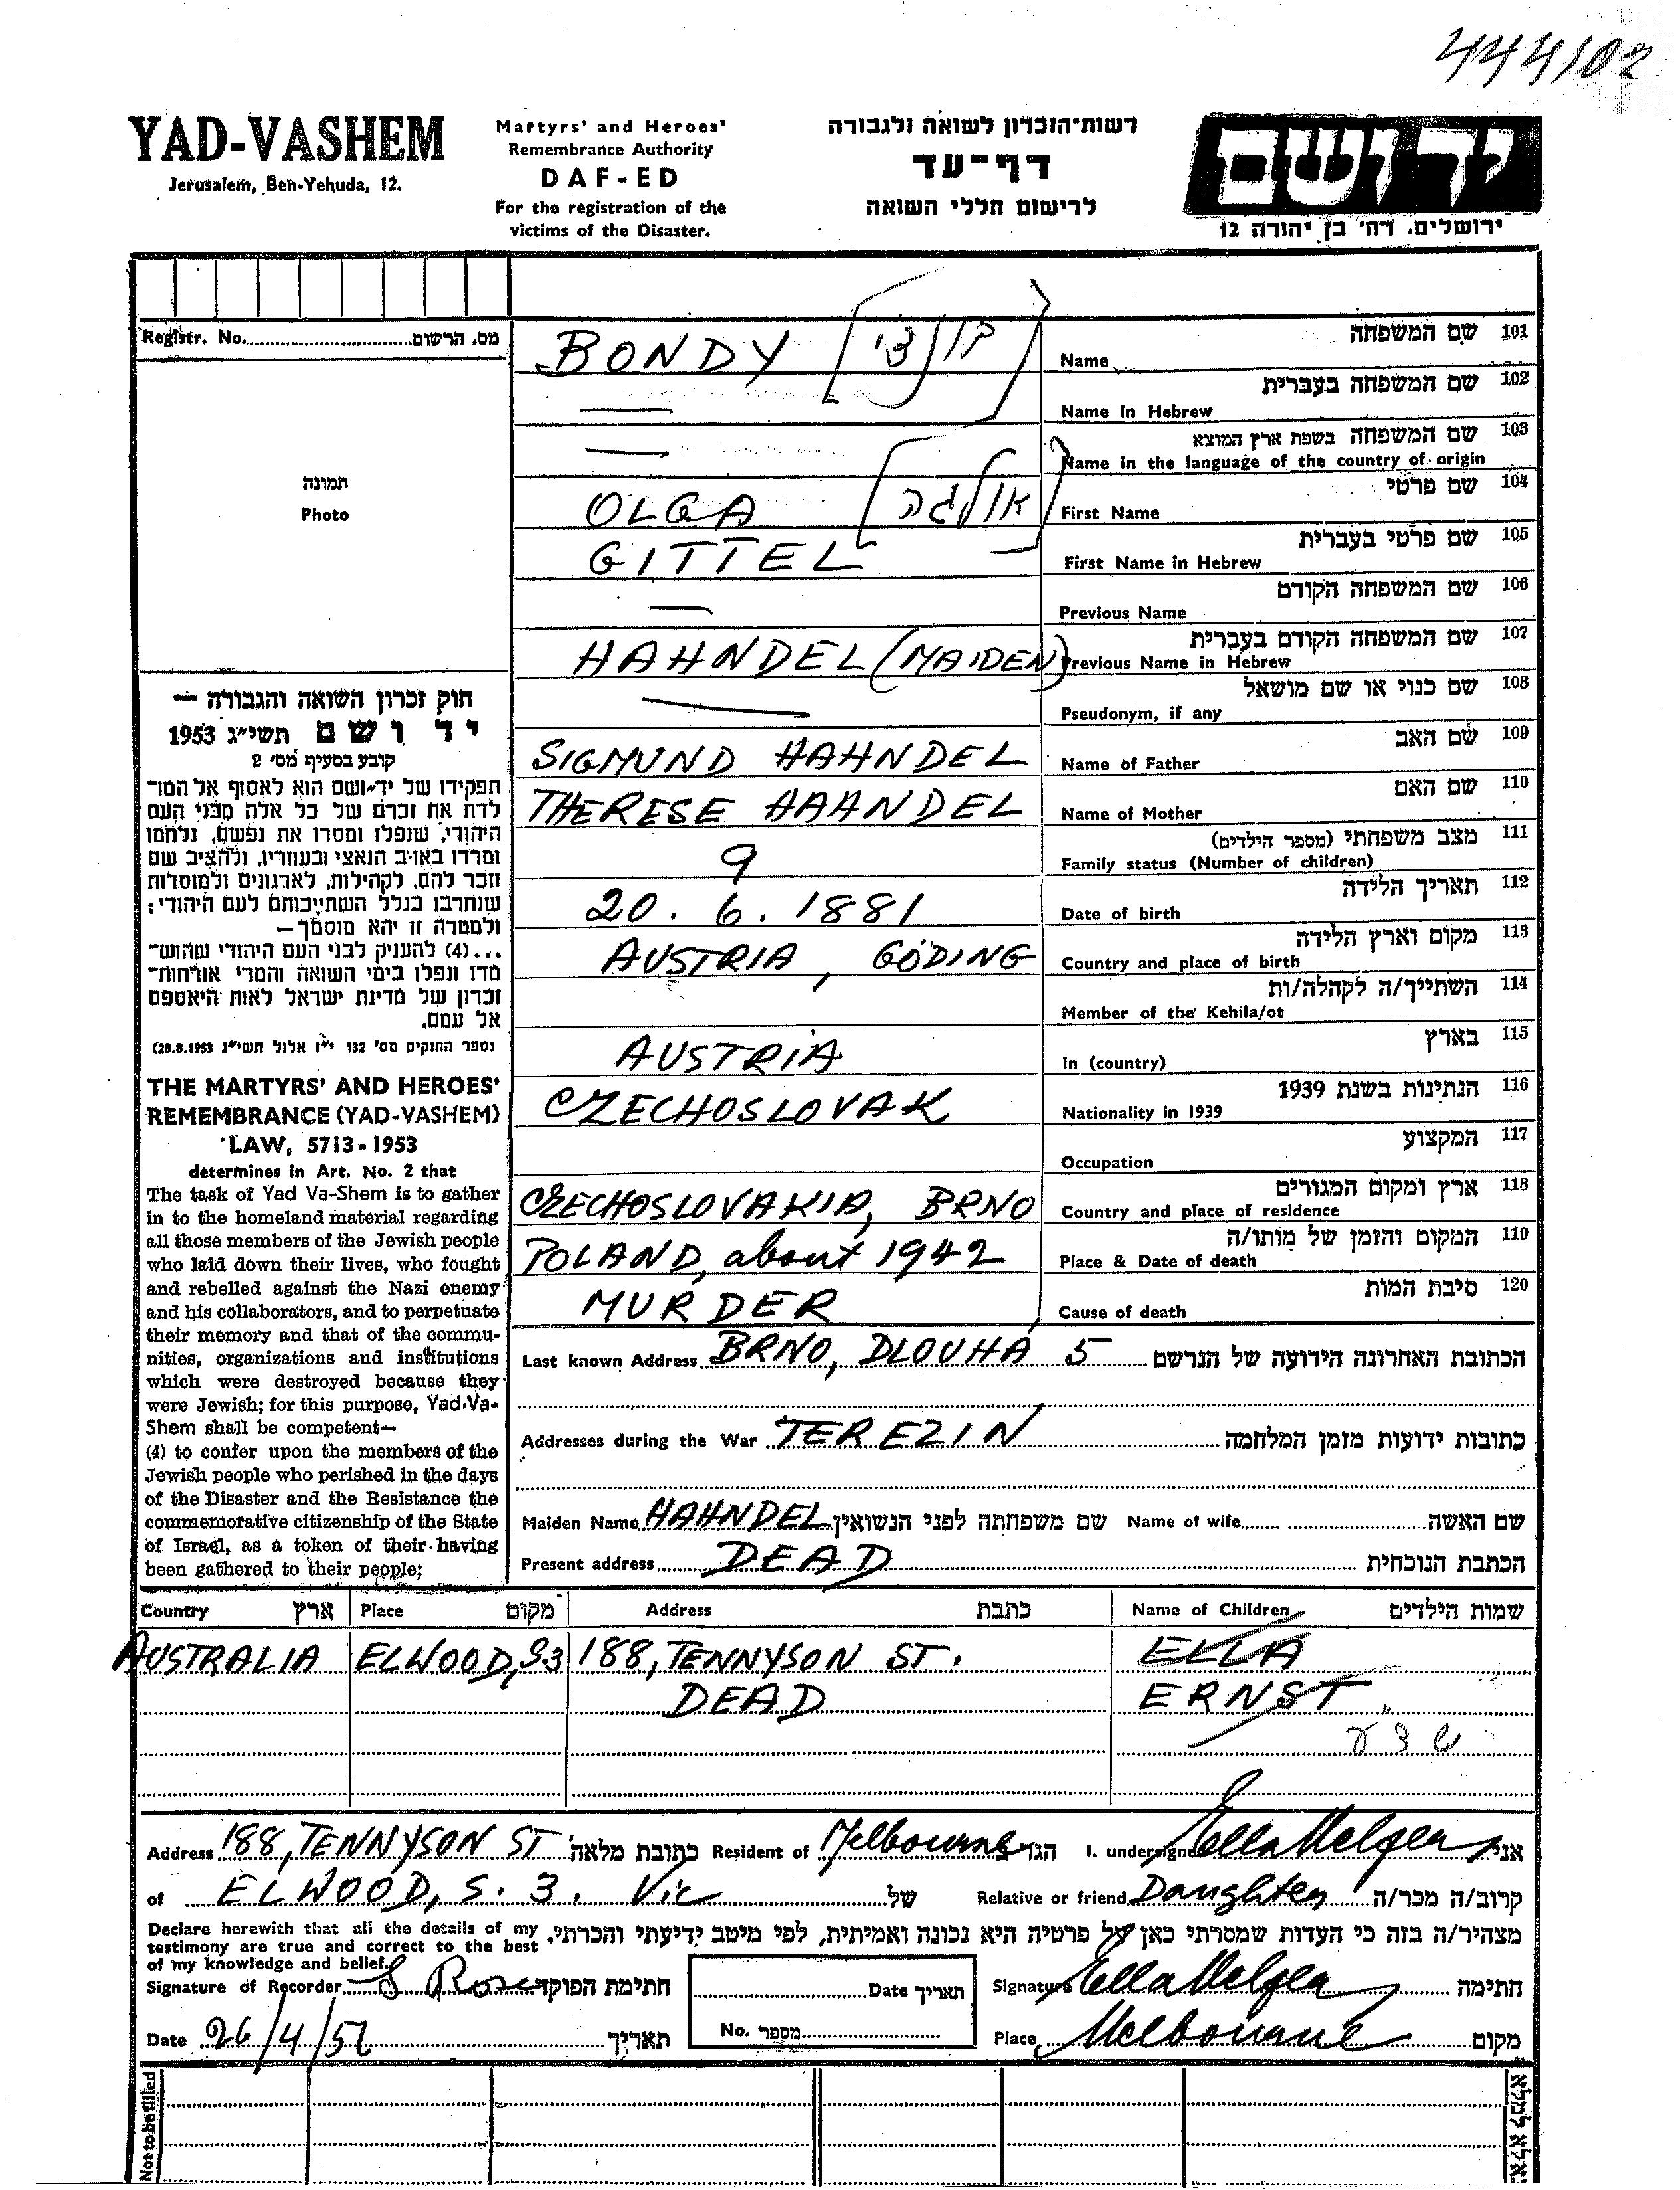 444/02
YAD-VASHEM
Jerusalem, Ben-Yehuda, 12.
Martyrs' and Heroes'
Remembrance Authority
DAF-ED
For the registration of the
victims of the Disaster.
רשות-הזכרון לשואה ולגבורה
דף-עד
לרישום חללי השואה
ידושם
ירושלים, רח' בן יהודה 12
Registr. No. מס. הרשום
תמונה
Photo
חוק זכרון השואה והגבורה —
יד ושם תשי"ג 1953
קובע בסעיף מס' 2
תפקידו של יד-ושם הוא לאסוף אל המו־
לדת את זכרם של כל אלה מבני העם
היהודי, שנפלו ומסרו את נפשם, נלחמו
ומרדו באויב הנאצי ובעוזריו, ולהציב שם
וזכר להם, לקהילות, לארגונים ולמוסדות
שנחרבו בגלל השתייכותם לעם היהודי;
ולמטרה זו יהא מוסמך—
...(4) להעניק לבני העם היהודי שהוש־
מדו ונפלו בימי השואה והמרי אזרחות־
זכרון של מדינת ישראל לאות היאספם
אל עמם.
(ספר החוקים מס' 132 י"ז אלול תשי"ג 28.8.1953)
THE MARTYRS' AND HEROES'
REMEMBRANCE (YAD-VASHEM)
LAW, 5713-1953
determines in Art. No. 2 that
The task of Yad Va-Shem is to gather
in to the homeland material regarding
all those members of the Jewish people
who laid down their lives, who fought
and rebelled against the Nazi enemy
and his collaborators, and to perpetuate
their memory and that of the commu-
nities, organizations and institutions
which were destroyed because they
were Jewish; for this purpose, Yad-Va-
Shem shall be competent—
(4) to confer upon the members of the
Jewish people who perished in the days
of the Disaster and the Resistance the
commemorative citizenship of the State
of Israel, as a token of their having
been gathered to their people;
BONDY [בונדי] Name שם המשפחה 101
— Name in Hebrew שם המשפחה בעברית 102
— Name in the language of the country of origin שם המשפחה בשפת ארץ המוצא 103
OLGA [אולגה] First Name שם פרטי 104
GITTEL First Name in Hebrew שם פרטי בעברית 105
— Previous Name שם המשפחה הקודם 106
HAHNDEL (MAIDEN) Previous Name in Hebrew שם המשפחה הקודם בעברית 107
— Pseudonym, if any שם כנוי או שם מושאל 108
SIGMUND HAHNDEL Name of Father שם האב 109
THERESE HAHNDEL Name of Mother שם האם 110
9 Family status (Number of children) מצב משפחתי (מספר הילדים) 111
20. 6. 1881 Date of birth תאריך הלידה 112
AUSTRIA, GÖDING Country and place of birth מקום וארץ הלידה 113
Member of the Kehila/ot השתייך/ה לקהלה/ות 114
AUSTRIA In (country) בארץ 115
CZECHOSLOVAK Nationality in 1939 הנתינות בשנת 1939 116
Occupation המקצוע 117
CZECHOSLOVAKIA, BRNO Country and place of residence ארץ ומקום המגורים 118
POLAND, about 1942 Place & Date of death המקום והזמן של מותו/ה 119
MURDER Cause of death סיבת המות 120
Last known Address BRNO, DLOUHA 5 הכתובת האחרונה הידועה של הנרשם
Addresses during the War TEREZIN כתובות ידועות מזמן המלחמה
Maiden Name HAHNDEL שם משפחתה לפני הנשואין Name of wife שם האשה
Present address DEAD הכתבת הנוכחית
Country ארץ Place מקום Address כתבת Name of Children שמות הילדים
AUSTRALIA ELWOOD, S3 188, TENNYSON ST. ELLA
DEAD ERNST
Address 188, TENNYSON ST כתובת מלאה Resident of Melbourne הגר ב I. undersigned Ella Melzer אני
of ELWOOD, S. 3. Vic של Relative or friend Daughter קרוב/ה מכר/ה
Declare herewith that all the details of my
testimony are true and correct to the best
of my knowledge and belief.
מצהיר/ה בזה כי העדות שמסרתי כאן על פרטיה היא נכונה ואמיתית, לפי מיטב ידיעתי והכרתי.
Signature of Recorder חתימת הפוקד Date תאריך Signature Ella Melzer חתימה
Date 26/4/57 תאריך No. מספר Place Melbourne מקום
Not to be filled
נא לא למלא